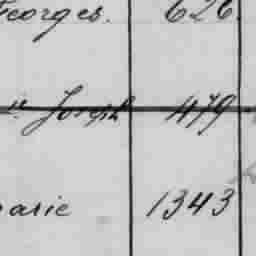 Georges. 626.
Joseph 479
arie 1343